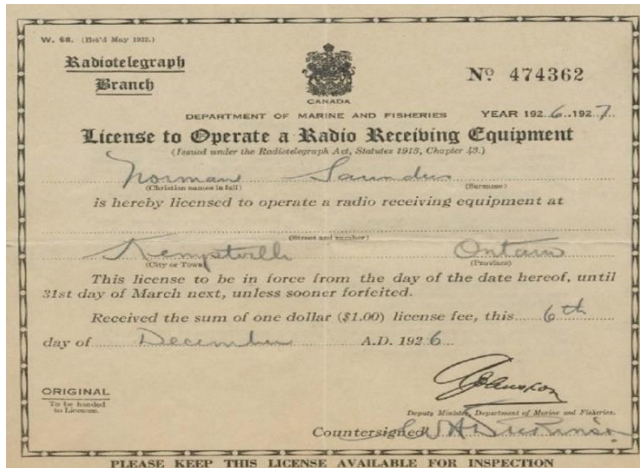 W. 68. (Est'd May 1922.)
Radiotelegraph
Branch
CANADA
No 474362
DEPARTMENT OF MARINE AND FISHERIES YEAR 1926..1927
License to Operate a Radio Receiving Equipment
(Issued under the Radiotelegraph Act, Statutes 1913, Chapter 43.)
Norman Saunders
(Christian names in full) (Surname)
is hereby licensed to operate a radio receiving equipment at
(Street and number)
Kemptville Ontario
(City or Town) (Province)
This license to be in force from the day of the date hereof, until
31st day of March next, unless sooner forfeited.
Received the sum of one dollar ($1.00) license fee, this 6th
day of December A.D. 1926
ORIGINAL
To be handed
to Licensee.
Deputy Minister, Department of Marine and Fisheries.
Countersigned
PLEASE KEEP THIS LICENSE AVAILABLE FOR INSPECTION